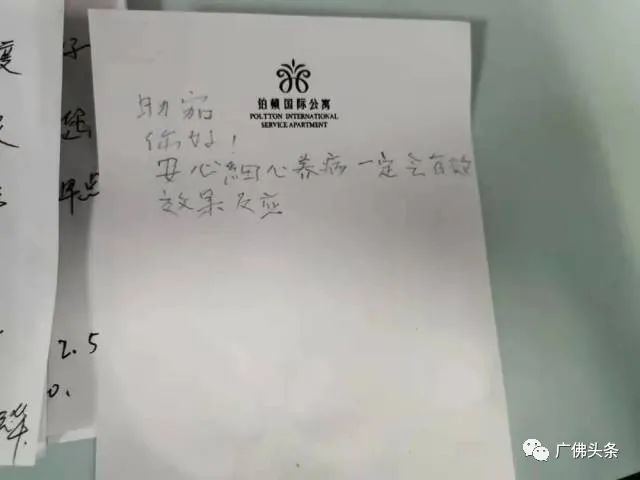 铂顿国际公寓
POLTTON INTERNATIONAL
SERVICE APARTMENT
你好！
安心細心养病一定会有效
效果反应
度 子
早点
2.5
0.
广佛头条